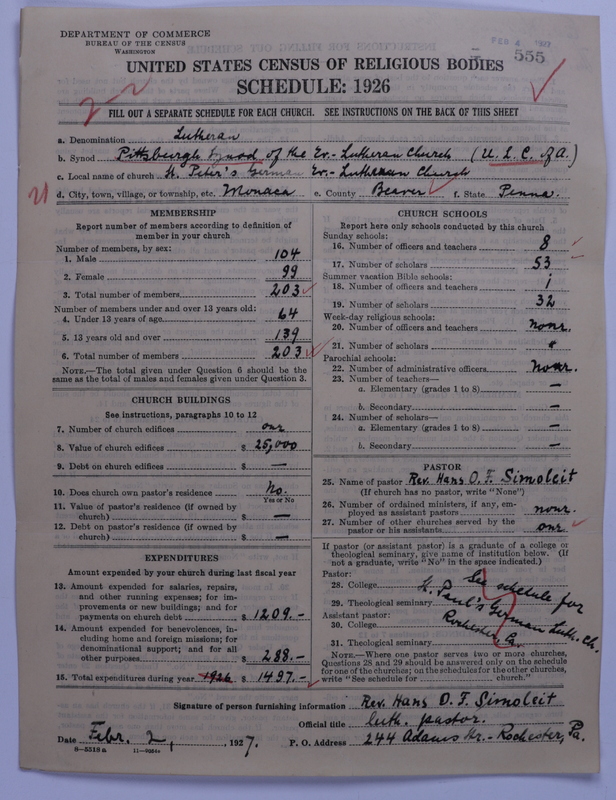 DEPARTMENT OF COMMERCE
BUREAU OF THE CENSUS
WASHINGTON
FEB 4 1927
555
UNITED STATES CENSUS OF RELIGIOUS BODIES
SCHEDULE: 1926
2-2
FILL OUT A SEPARATE SCHEDULE FOR EACH CHURCH. SEE INSTRUCTIONS ON THE BACK OF THIS SHEET
a. Denomination Lutheran
b. Synod Pittsburgh Synod of the Ev.-Lutheran Church (U.L.C. of A.)
c. Local name of church St. Peter's German Ev.-Lutheran Church
d. City, town, village, or township, etc. Monaca e. County Beaver f. State Penna.
MEMBERSHIP
Report number of members according to definition of member in your church
Number of members, by sex:
1. Male 104
2. Female 99
3. Total number of members 203
Number of members under and over 13 years old:
4. Under 13 years of age 64
5. 13 years old and over 139
6. Total number of members 203
NOTE.—The total given under Question 6 should be the
same as the total of males and females given under Question 3.
CHURCH BUILDINGS
See instructions, paragraphs 10 to 12
7. Number of church edifices one
8. Value of church edifices $ 25,000
9. Debt on church edifices $ —
10. Does church own pastor's residence No.
Yes or No
11. Value of pastor's residence (if owned by
church) $ —
12. Debt on pastor's residence (if owned by
church) $ —
EXPENDITURES
Amount expended by your church during last fiscal year
13. Amount expended for salaries, repairs,
and other running expenses; for im-
provements or new buildings; and for
payments on church debt $ 1209.-
14. Amount expended for benevolences, in-
cluding home and foreign missions; for
denominational support; and for all
other purposes 288.-
15. Total expenditures during year 1926 $ 1497.-
CHURCH SCHOOLS
Report here only schools conducted by this church
Sunday schools:
16. Number of officers and teachers 8
17. Number of scholars 53
Summer vacation Bible schools:
18. Number of officers and teachers 1
19. Number of scholars 32
Week-day religious schools:
20. Number of officers and teachers none.
21. Number of scholars "
Parochial schools:
22. Number of administrative officers none.
23. Number of teachers—
a. Elementary (grades 1 to 8) —
b. Secondary —
24. Number of scholars—
a. Elementary (grades 1 to 8) —
b. Secondary —
PASTOR
25. Name of pastor Rev. Hans O. F. Simoleit
(If church has no pastor, write "None")
26. Number of ordained ministers, if any, em-
ployed as assistant pastors none.
27. Number of other churches served by the
pastor or his assistants one.
If pastor (or assistant pastor) is a graduate of a college or
theological seminary, give name of institution below. (If
not a graduate, write "No" in the space indicated.)
Pastor:
28. College See schedule for
29. Theological seminary St. Paul's German Luth. Ch.
Assistant pastor:
30. College Rochester Pa.
31. Theological seminary
NOTE.—Where one pastor serves two or more churches,
Questions 28 and 29 should be answered only on the schedule
for one of the churches; on the schedules for the other churches,
write "See schedule for church."
Signature of person furnishing information Rev. Hans O. F. Simoleit
Official title luth. pastor.
Date Febr. 2, 1927. P. O. Address 244 Adams Str.- Rochester, Pa.
8-5518a